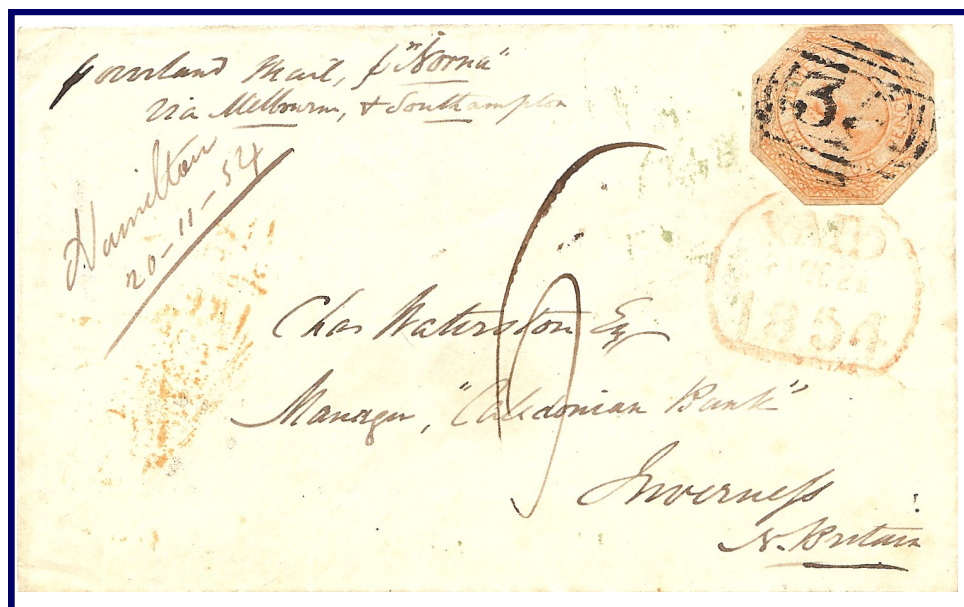 p overland Mail, p "Norna"
via Melbourne, & Southampton
Hamilton
20-11-54
3
6
Chas Waterston Esq
Manager, "Caledonian Bank"
Inverness
N. Britain